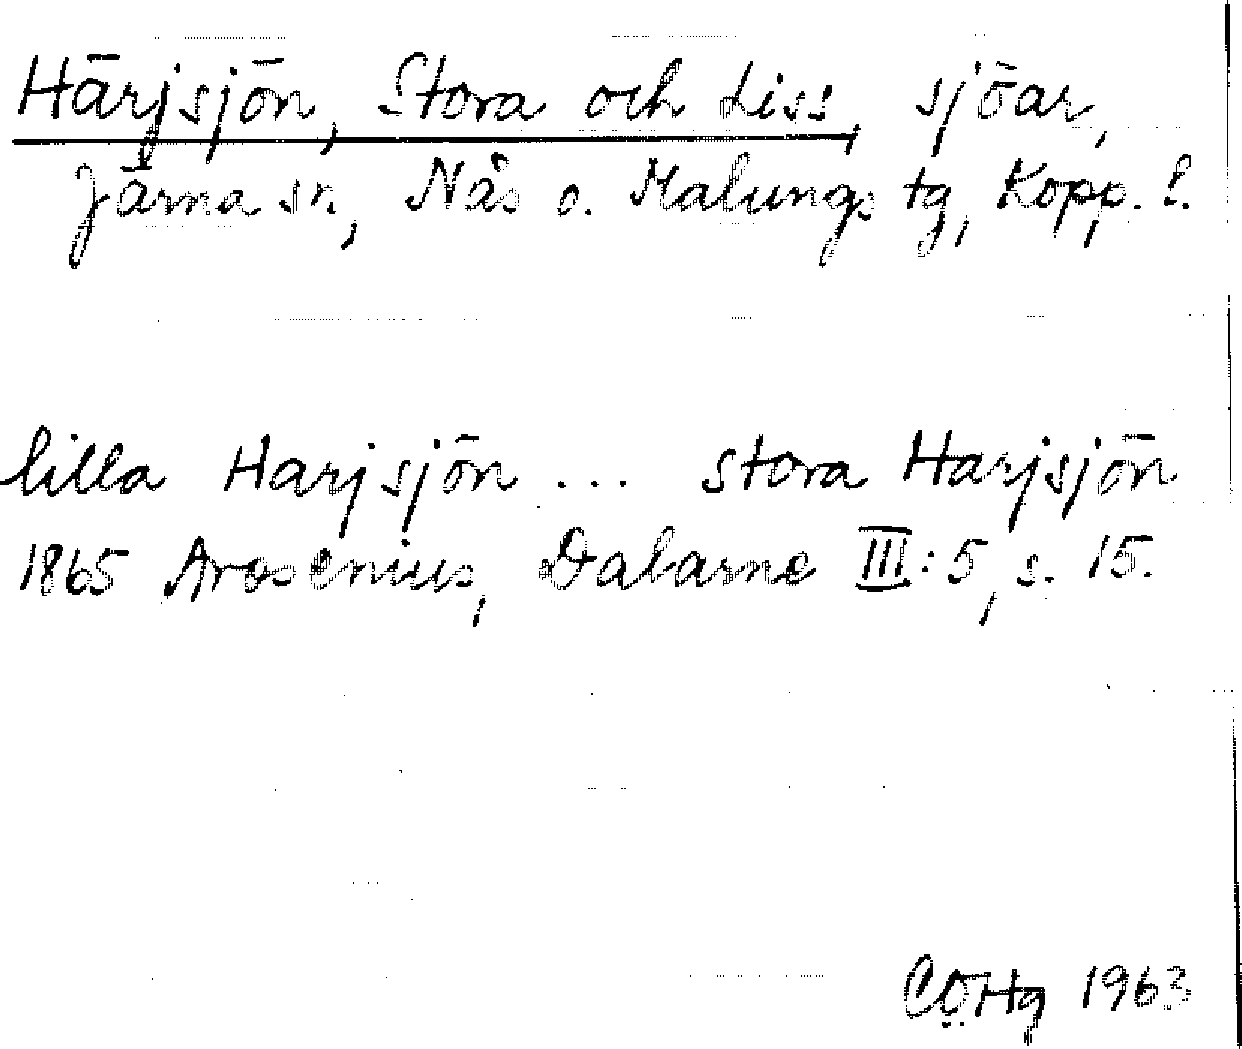 Härjsjön, Stora och Liss, sjöar,
Järna sn, Nås o. Malungs tg, Kopp. l.
lilla Harjsjön ... stora Harjsjön
1865 Arosenius, Dalarne III:5, s. 15.
CÖHg 1963